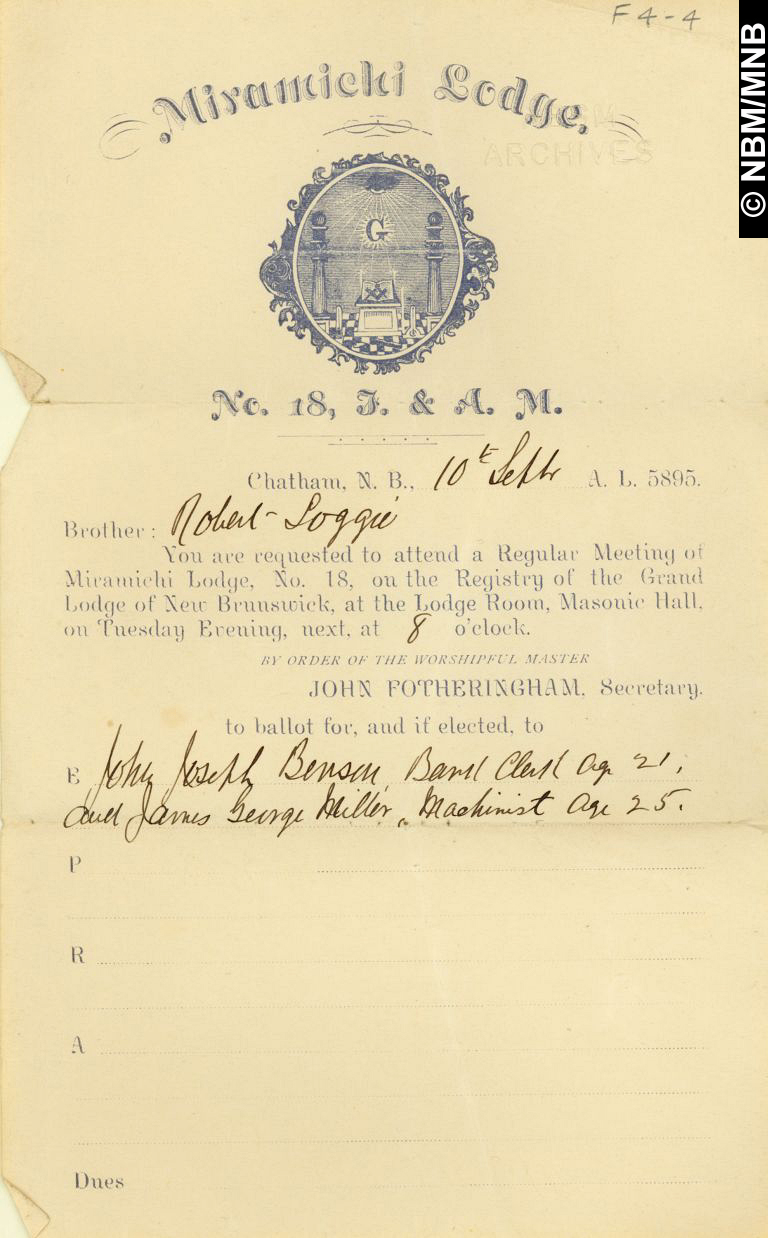 F4-4
© NBM/MNB
Miramichi Lodge,
ARCHIVES
G
No. 18, F. & A. M.
Chatham, N. B., 10t Septbr A. L. 5895.
Brother: Robert Loggie
You are requested to attend a Regular Meeting of
Miramichi Lodge, No. 18, on the Registry of the Grand
Lodge of New Brunswick, at the Lodge Room, Masonic Hall,
on Tuesday Evening, next, at 8 o'clock.
BY ORDER OF THE WORSHIPFUL MASTER
JOHN FOTHERINGHAM, Secretary.
to ballot for, and if elected, to
E John Joseph Benson, Bank Clerk age 21,
and James George Miller, Machinist age 25.
P
R
A
Dues